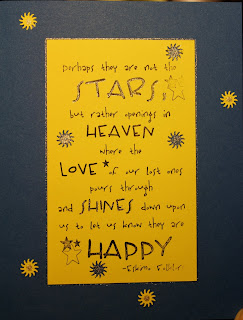 perhaps they are not the
STARS,
but rather openings in
HEAVEN
where the
LOVE of our lost ones
pours through
and SHINES down upon
us to let us know they are
HAPPY
-Eskimo